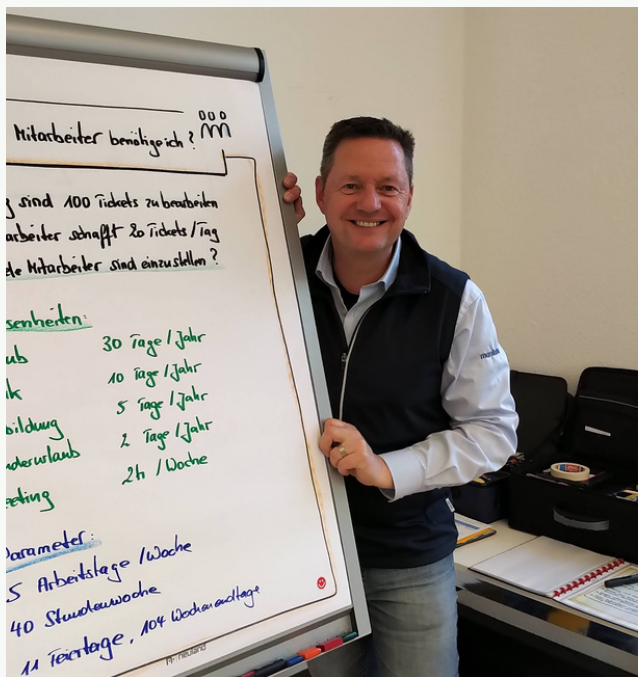 Mitarbeiter benötige ich?
g sind 100 Tickets zu bearbeiten
arbeiter schafft 20 Tickets/Tag
ele Mitarbeiter sind einzustellen?
senheiten:
ub 30 Tage/Jahr
nk 10 Tage/Jahr
bildung 5 Tage/Jahr
nderurlaub 2 Tage/Jahr
eeting 2h/Woche
Parameter:
5 Arbeitstage/Woche
40 Stundenwoche
11 Feiertage, 104 Wochenendtage
neuland